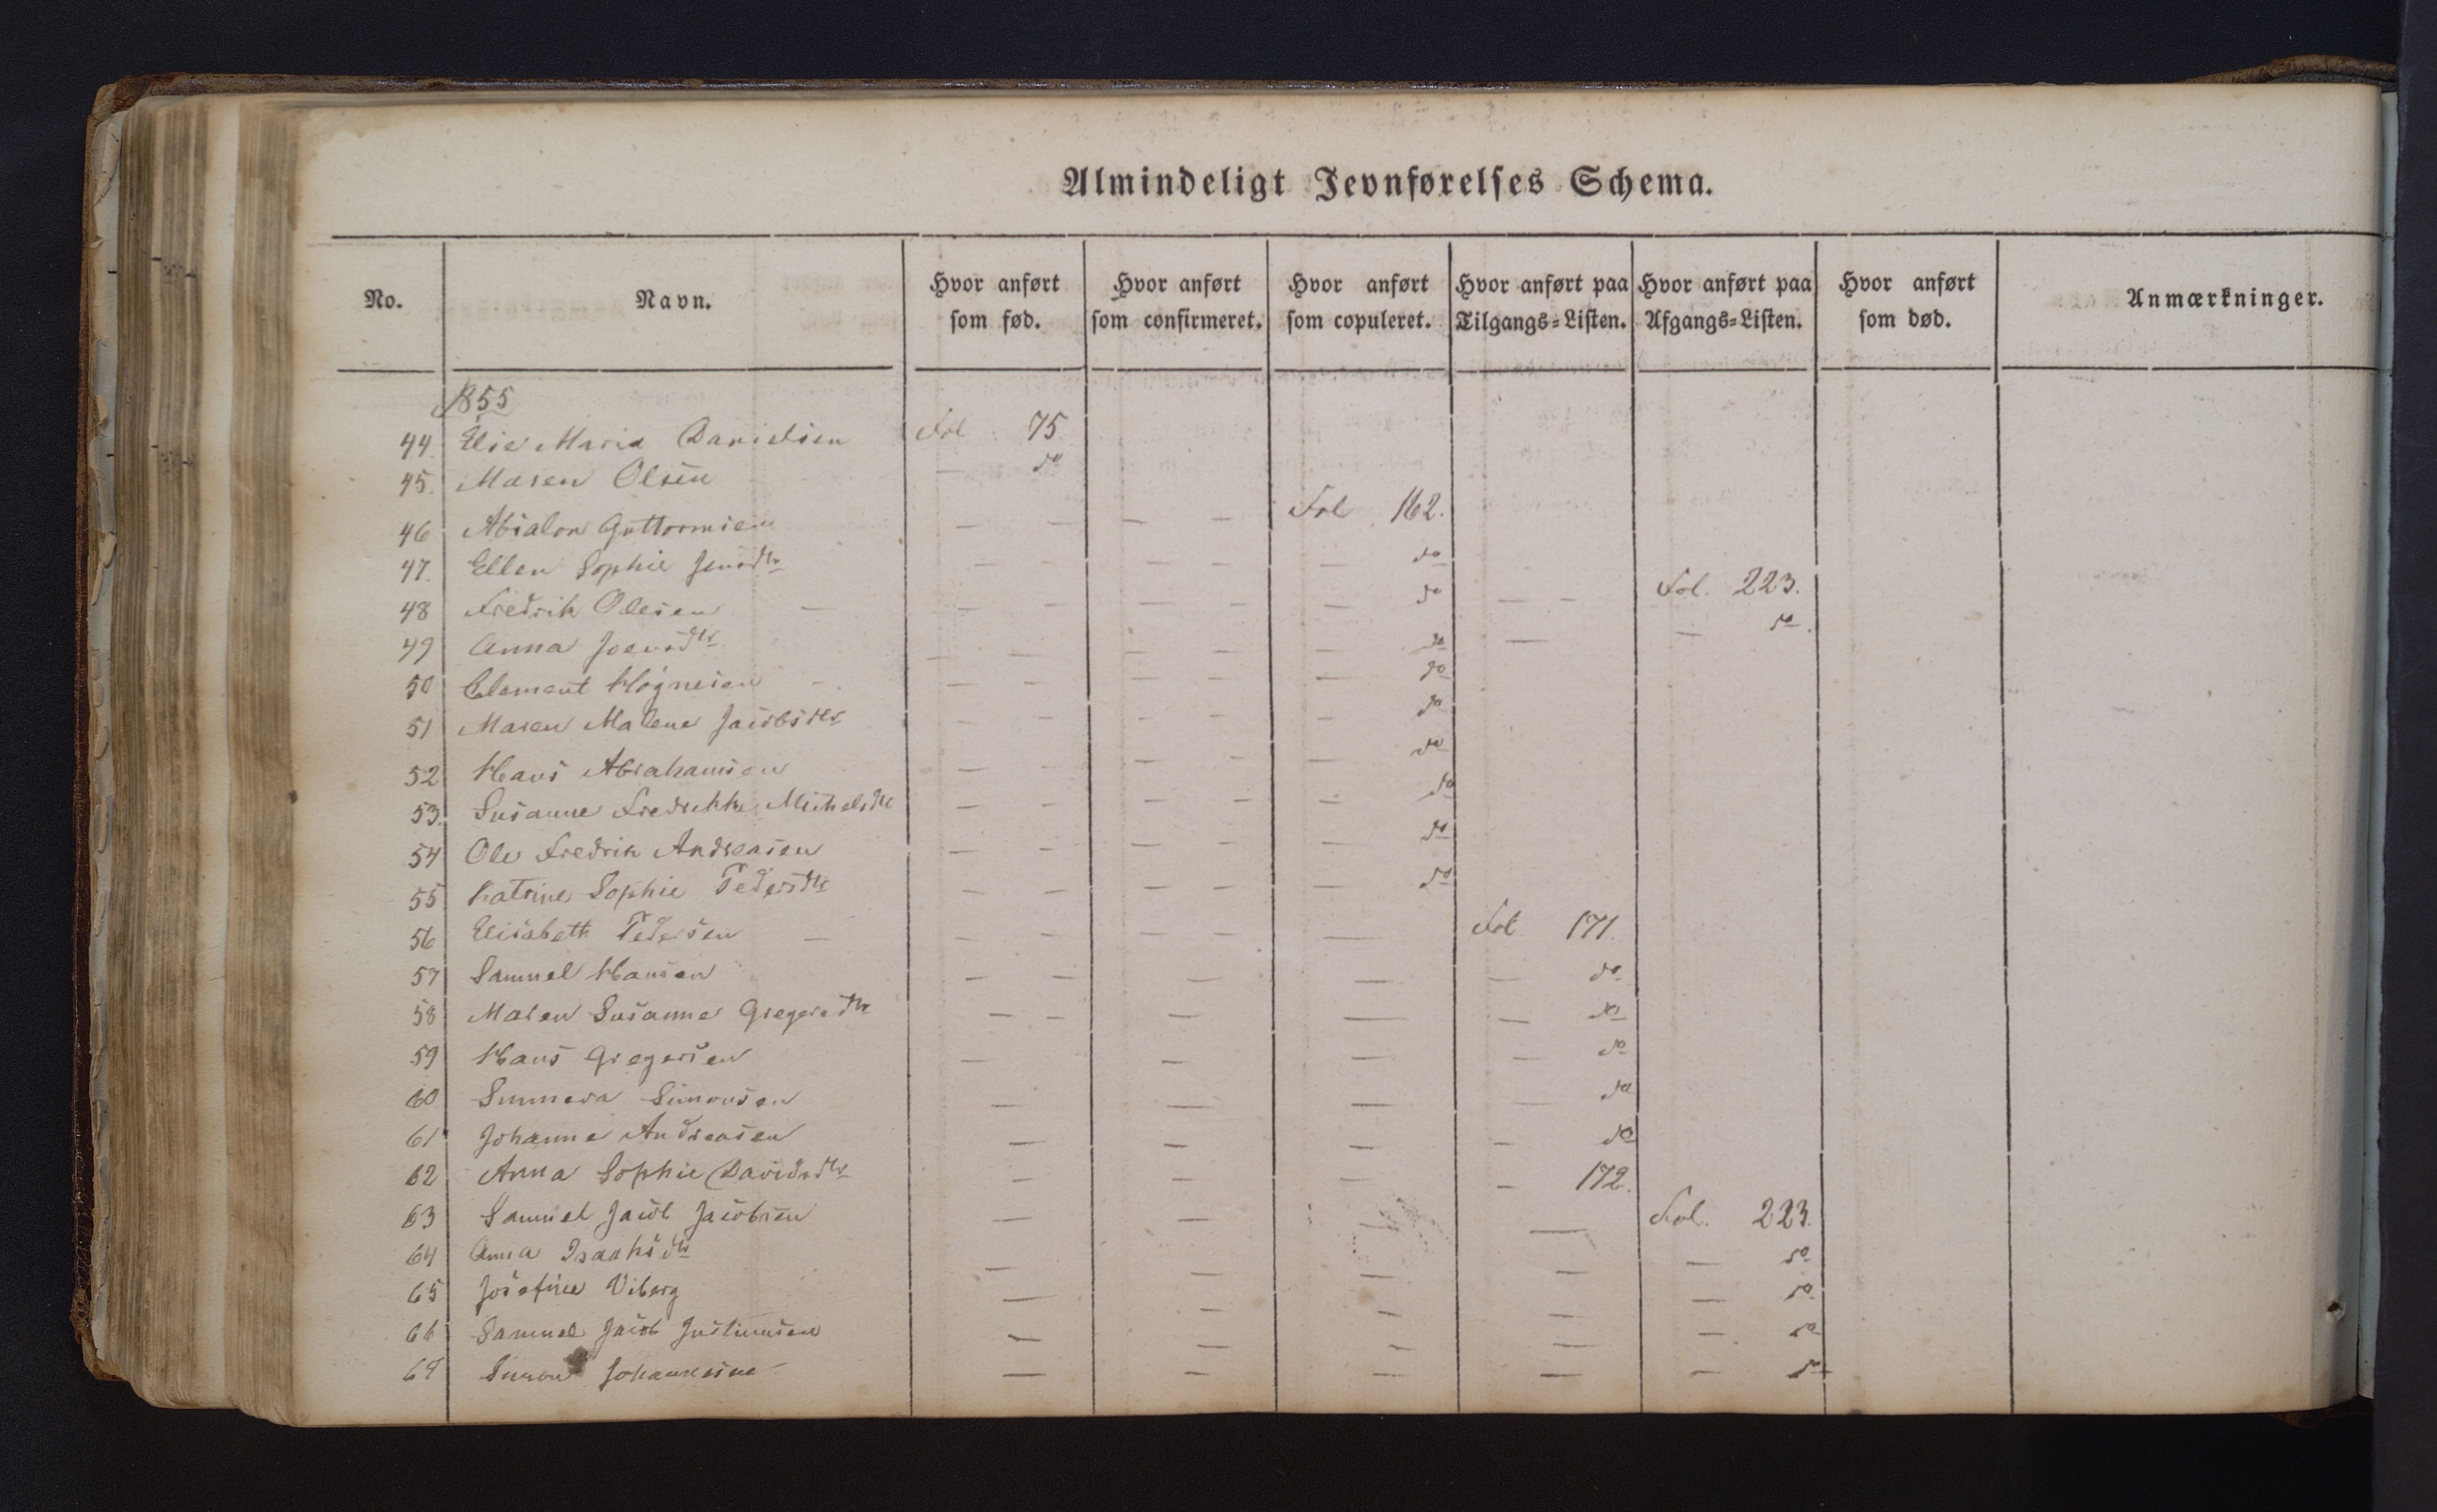 Almindeligt Jevnførelses Schema.
No. Navn. Hvor anført som fød. Hvor anført som confirmeret. Hvor anført som copuleret. Hvor anført paa Tilgangs=Listen. Hvor anført paa Afgangs=Listen. Hvor anført som død. Anmærkninger.
1855
44. Elsе Maria Danielsen Fol 75
45. Maren Olsen — do
46 Absalon Guttormsen — — — — Fol 162.
47. Ellen Sophie Jensdtr — — — — — do
48 Fredrik Olesen — — — — — — do — — Fol. 223.
49 Anna Joensdtr — — — — — do — — do.
50 Clement Høgnesen — — — — — — do
51 Maren Malene Jacobsdtr — — — — — do
52 Hans Abrahamsen — — — — — do
53. Susanne Fredrikke Michelsdtr — — — — — do
54 Ole Fredrik Andreasen — — — — — do
55 Katrine Sophie Pedersdtr — — — — — do
56 Elisabeth Pedersen — — — — — — Fol 171.
57 Samuel Hansen — — — — — do
58 Malen Susanne Gregersdtr — — — — — do
59 Hans Gregersen — — — — do
60 Sunneva Simonsen — — — — do
61 Johanne Andreasen — — — — do
62 Anna Sophie Davidsdtr — — — — 172.
63 Samuel Jacob Jacobsen — — — — Fol. 223.
64 Anna Isaaksdtr — — — — — do
65 Josefine Viberg — — — — — do
66 Samuel Jacob Justinusen — — — — — do
67 Simon Johannesen — — — — — do